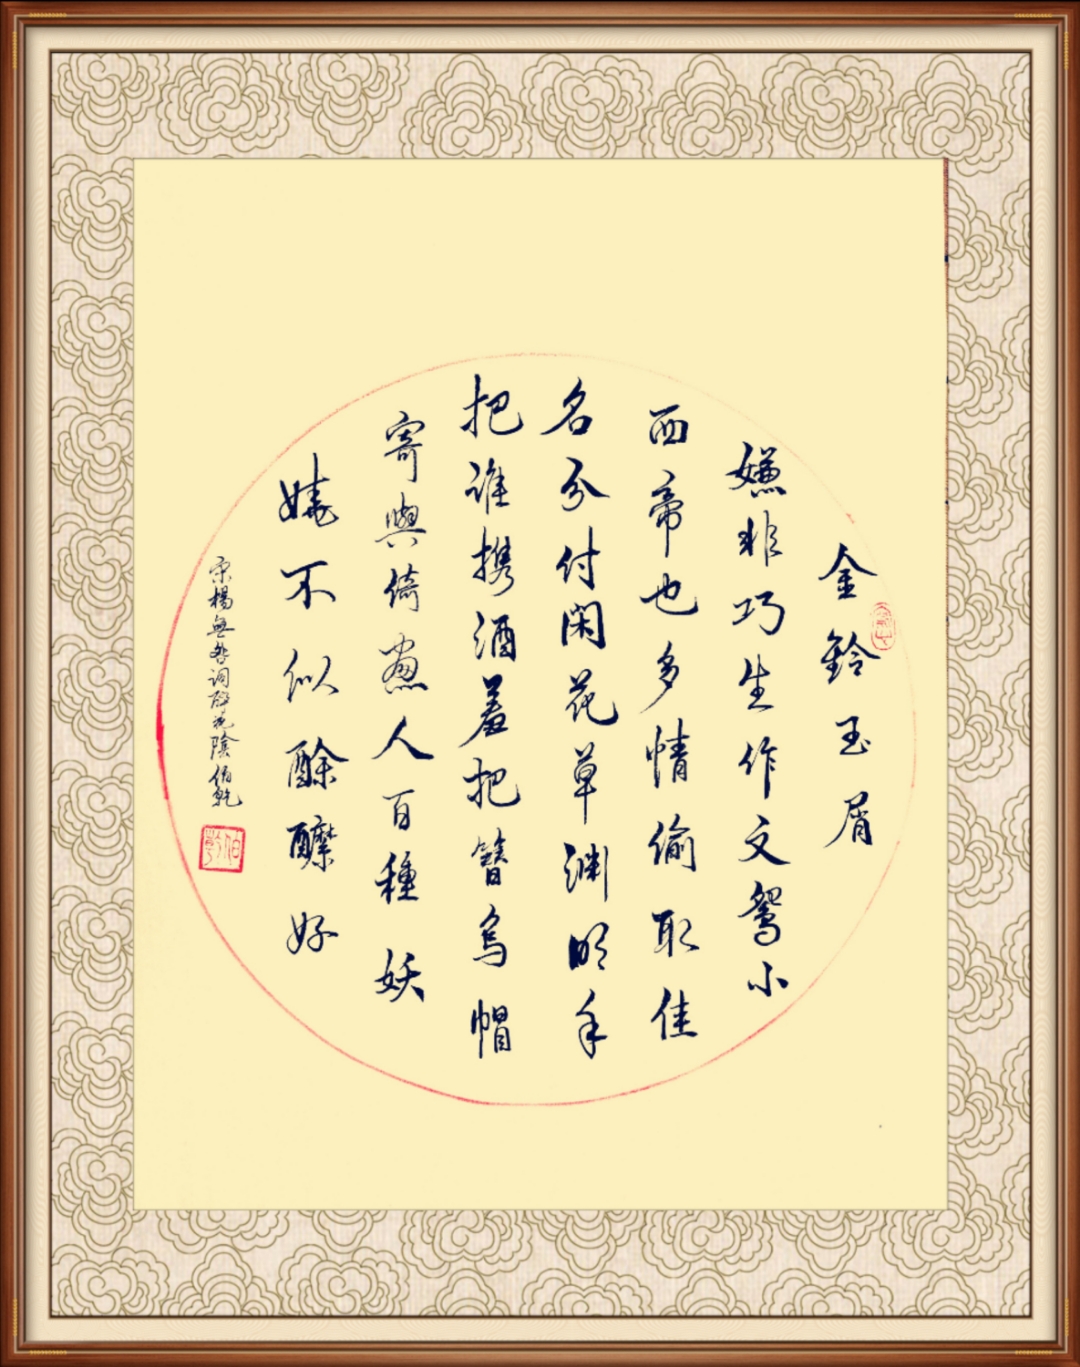 金鈴玉屑
嫌非巧生作文鴛小
西帝也多情偷取佳
名分付閑花草淵明手
把誰携酒羞把簪烏帽
寄與倚窻人百種妖
嬈不似酴醾好
宋楊無咎詞 陰伯乾